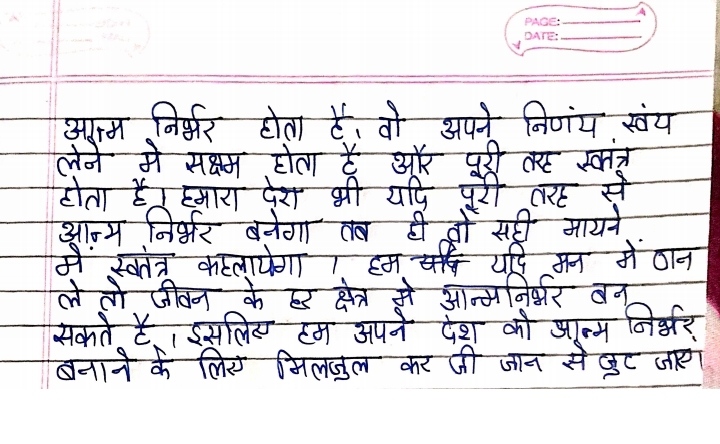 PAGE:
DATE:
आत्म निर्भर होता है, वो अपने निणंय स्वंय
लेने मे सक्षम होता है और पूरी तरह स्वतंत्र
होता है। हमारा देश भी यदि पूरी तरह से
आत्म निर्भर बनेगा तब ही तो सही मायने
में स्वतंत्र कहलायेगा । हम यदि यदि मन में ठान
ले तो जीवन के हर क्षेत्र मे आत्मनिर्भर बन
सकते है । इसलिए हम अपने देश को आत्म निर्भर
बनाने के लिए मिलजुल कर जी जान से जुट जाए।